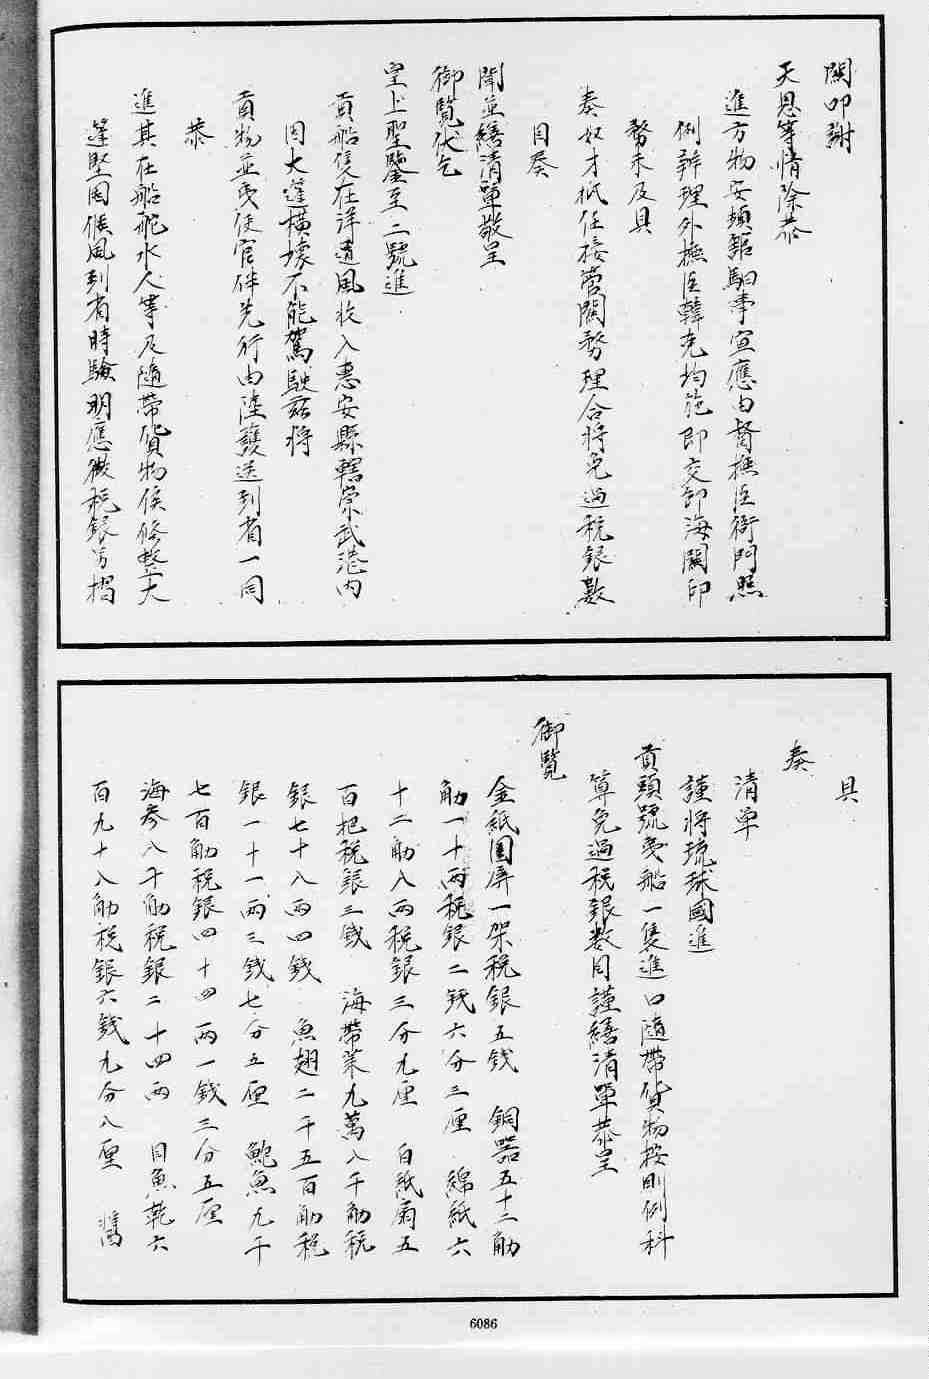 闕叩謝
天恩等情除恭
進方物安頓館馹事宜應由督撫臣衙門照
例辦理外撫臣韓克均施即交卸海關印
務未及具
奏奴才祇任接管關務理合將免過稅銀數
目奏
聞並繕清單敬呈
御覽伏乞
皇上聖鑒至二號進
貢船隻在洋遭風收入惠安縣轄崇武港內
因大篷橫壞不能駕駛茲將
貢物並夷使官伴先行由陸護送到省一同
恭
進其在船舵水人等及隨帶貨物俟修整大
篷堅固候風到省時驗明應徵稅銀另摺
具
奏
清單
謹將琉球國進
貢頭號夷船一隻進口隨帶貨物按則例科
算免過稅銀數目謹繕清單恭呈
御覽
金紙圍屏一架稅銀五錢 銅器五十二觔
觔一十兩稅銀二錢六分三厘 綿紙六
十二觔八兩稅銀三分九厘 白紙扇五
百把稅銀三錢 海帶菜九萬八千觔稅
銀七十八兩四錢 魚翅二千五百觔稅
銀一十一兩三錢七分五厘 鮑魚九千
七百觔稅銀四十四兩一錢三分五厘
海參八千觔稅銀二十四兩 目魚乾六
百九十八觔稅銀六錢九分八厘 醬
6086